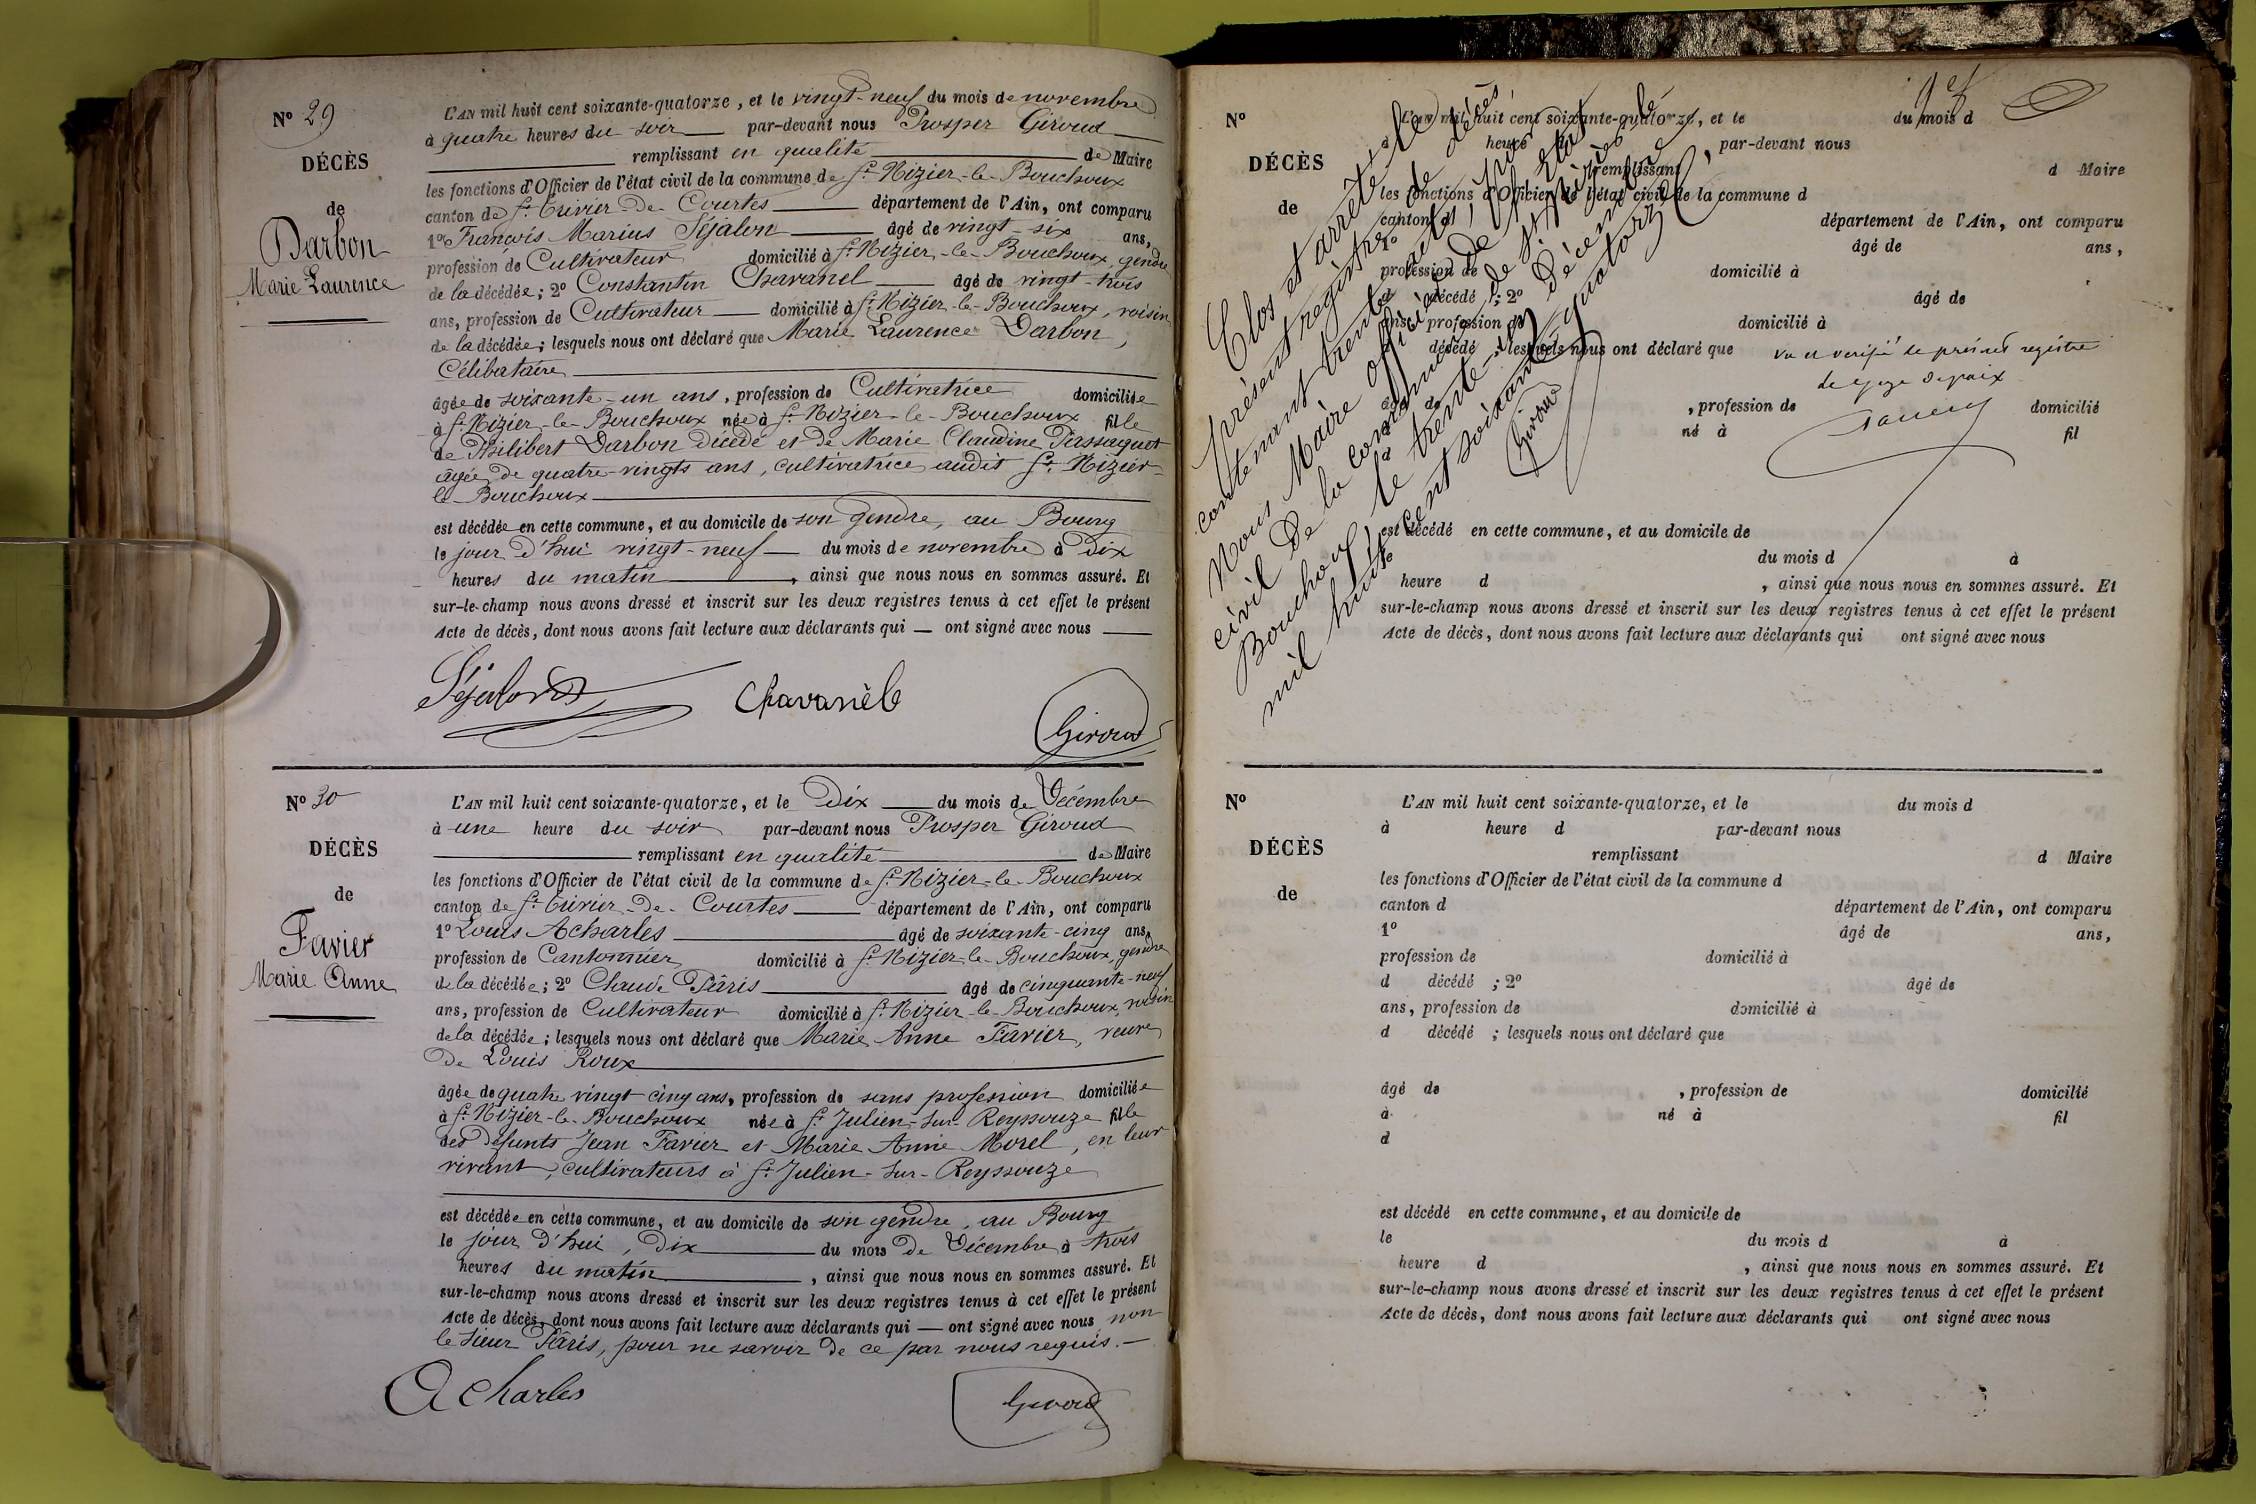 N° 29
DÉCÈS
de
Darbon
Marie Laurence
L'AN mil huit cent soixante-quatorze, et le vingt-neuf du mois de novembre
à quatre heures du soir par-devant nous Prosper Giroud
remplissant en qualité de Maire
les fonctions d'Officier de l'état civil de la commune de St Nizier-le-Bouchoux
canton de St Trivier-de-Courtes département de l'Ain, ont comparu
1° François Marius Séjalon âgé de vingt-six ans,
profession de Cultivateur domicilié à St Nizier-le-Bouchoux, gendre
de la décédée; 2° Constantin Chavanel âgé de vingt-trois
ans, profession de Cultivateur domicilié à St Nizier-le-Bouchoux, voisin
de la décédée; lesquels nous ont déclaré que Marie Laurence Darbon,
Célibataire
âgée de soixante-un ans, profession de Cultivatrice domiciliée
à St Nizier-le-Bouchoux née à St Nizier-le-Bouchoux fille
de Philibert Darbon décédé et de Marie Claudine
âgée de quatre-vingts ans, cultivatrice audit St Nizier-
le-Bouchoux
est décédée en cette commune, et au domicile de son gendre, au Bourg
le jour d'hui vingt-neuf du mois de novembre à dix
heures du matin, ainsi que nous nous en sommes assuré. Et
sur-le-champ nous avons dressé et inscrit sur les deux registres tenus à cet effet le présent
Acte de décès, dont nous avons fait lecture aux déclarants qui — ont signé avec nous
Séjalon Chavanèl Giroud
N° 30
DÉCÈS
de
Favier
Marie Anne
L'AN mil huit cent soixante-quatorze, et le Dix du mois de Décembre
à une heure du soir par-devant nous Prosper Giroud
remplissant en qualité de Maire
les fonctions d'Officier de l'état civil de la commune de St Nizier-le-Bouchoux
canton de St Trivier-de-Courtes département de l'Ain, ont comparu
1° Louis Acharles âgé de soixante-cinq ans,
profession de Cantonnier domicilié à St Nizier-le-Bouchoux, gendre
de la décédée; 2° Claude Pâris âgé de cinquante-neuf
ans, profession de Cultivateur domicilié à St Nizier-le-Bouchoux, voisin
de la décédée; lesquels nous ont déclaré que Marie Anne Favier, veuve
de Louis Roux
âgée de quatre vingt cinq ans, profession de sans profession domiciliée
à St Nizier-le-Bouchoux née à St Julien-sur-Reyssouze fille
des défunts Jean Favier et Marie Anne Morel, en leur
vivant, cultivateurs à St Julien-sur-Reyssouze
est décédée en cette commune, et au domicile de son gendre, au Bourg
le jour d'hui, Dix du mois de Décembre à trois
heures du matin, ainsi que nous nous en sommes assuré. Et
sur-le-champ nous avons dressé et inscrit sur les deux registres tenus à cet effet le présent
Acte de décès, dont nous avons fait lecture aux déclarants qui — ont signé avec nous non
le sieur Pâris, pour ne savoir de ce par nous requis.
Acharles Giroud
N°
DÉCÈS
de
L'AN mil huit cent soixante-quatorze, et le du mois d
à heure d par-devant nous
remplissant d Maire
les fonctions d'Officier de l'état civil de la commune d
canton d département de l'Ain, ont comparu
1° âgé de ans,
profession de domicilié à
d décédé ; 2° âgé de
ans, profession de domicilié à
d décédé ; lesquels nous ont déclaré que
âgé de , profession de domicilié
à né à fil
d
est décédé en cette commune, et au domicile de
le du mois d à
heure d , ainsi que nous nous en sommes assuré. Et
sur-le-champ nous avons dressé et inscrit sur les deux registres tenus à cet effet le présent
Acte de décès, dont nous avons fait lecture aux déclarants qui ont signé avec nous
Clos et arrêté le
présent registre de décès
contenant trente actes, par
Nous Maire officier de l'état
civil de la commune de St Nizier le
Bouchoux, le trente-un Décembre
mil huit cent soixante quatorze,
Giroud
vu et vérifié le présent registre
le juge de paix
N°
DÉCÈS
de
L'AN mil huit cent soixante-quatorze, et le du mois d
à heure d par-devant nous
remplissant d Maire
les fonctions d'Officier de l'état civil de la commune d
canton d département de l'Ain, ont comparu
1° âgé de ans,
profession de domicilié à
d décédé ; 2° âgé de
ans, profession de domicilié à
d décédé ; lesquels nous ont déclaré que
âgé de , profession de domicilié
à né à fil
d
est décédé en cette commune, et au domicile de
le du mois d à
heure d , ainsi que nous nous en sommes assuré. Et
sur-le-champ nous avons dressé et inscrit sur les deux registres tenus à cet effet le présent
Acte de décès, dont nous avons fait lecture aux déclarants qui ont signé avec nous